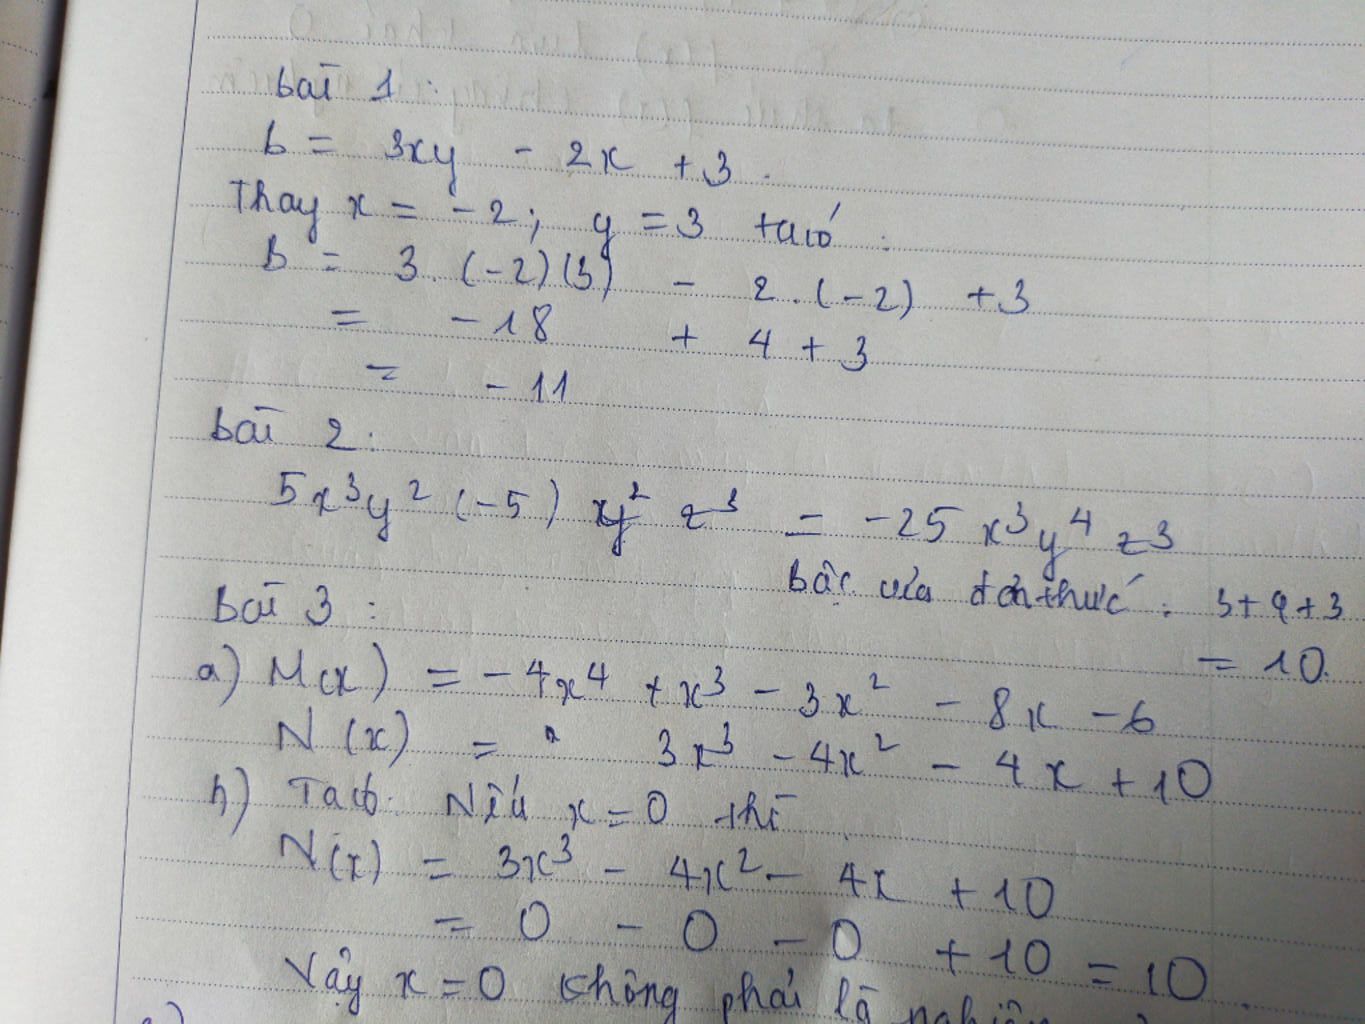 bài 1:
b = 3xy - 2x + 3.
Thay x = -2; y = 3 ta có:
B = 3. (-2)(3) - 2.(-2) + 3
= -18 + 4 + 3
= -11
bài 2:
5x³y² (-5) xy² z³ = -25 x³y⁴ z³
bậc của đơn thức: 3+4+3
= 10.
bài 3:
a) M(x) = -4x⁴ + x³ - 3x² - 8x - 6
N(x) = 3x³ - 4x² - 4x + 10
b) Ta có: Nếu x = 0 thì
N(x) = 3x³ - 4x² - 4x + 10
= 0 - 0 - 0 + 10 = 10
Vậy x = 0 không phải là nghiệm